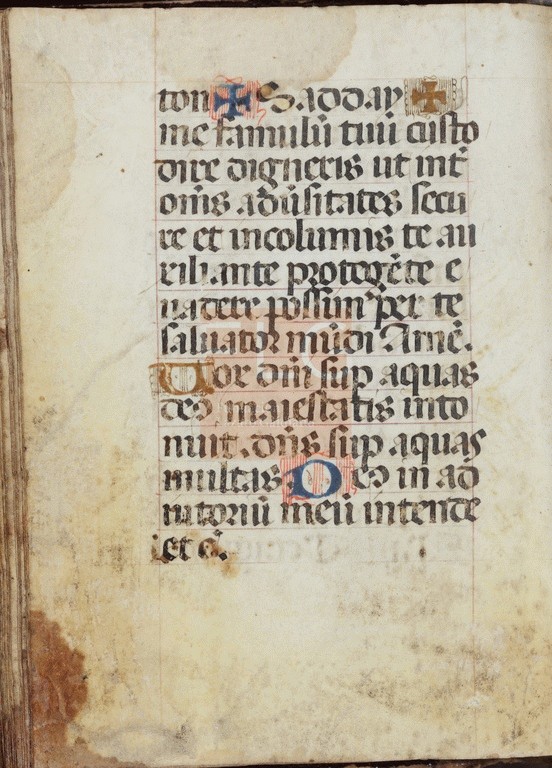 ton ✠ Sadday ✠
me famulū tuū custo
dire digneris ut int̄
om̄s aduͥsitates secu
re et incolumis te au
xiliante protegēte e
uadere possim per te
saluator mūdi Amē.
Uox dn̄i sup aquas
deꝰ maiestatis into
nuit. dn̄s sup aquas
multas Deꝰ in ad
iutoriū meū intende
et c̄.